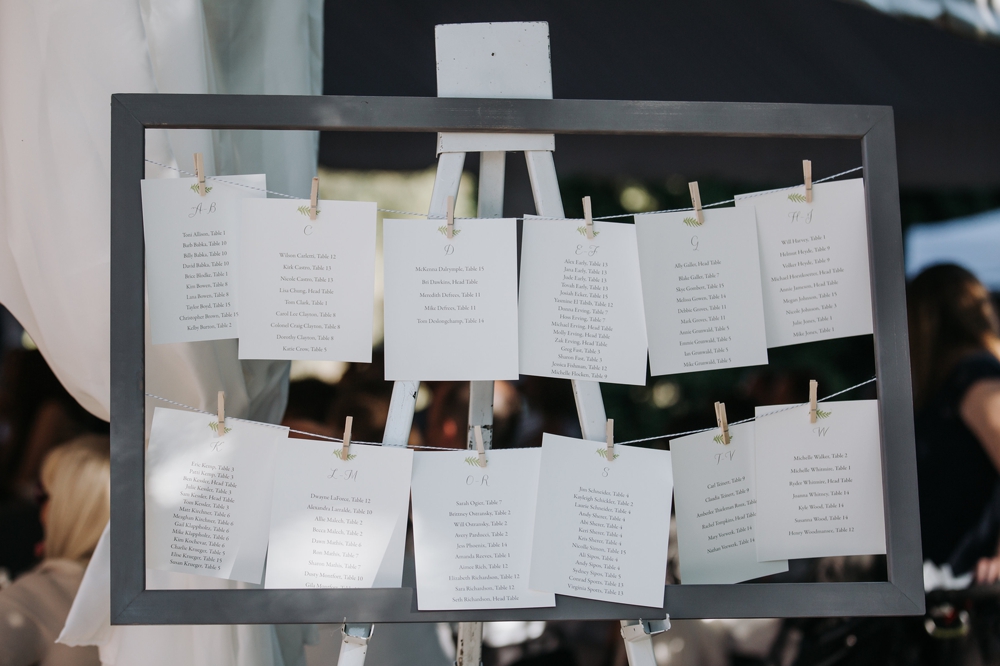 A-B
Toni Allison, Table
Barb Babka, Table 10
Billy Babka, Table 10
David Babka, Table 10
Table 1
Kim Bowen, Table 8
Lana Bowen, Table 8
Taylor Boyd, Table 15
Christopher Brown, Table 15
Kelby Burton, Table 2
C
Wilson Table 12
Kirk Castro, Table 13
Nicole Castro, Table 13
Lisa Chung, Head Table
Tom Clark, Table 1
Carol Lee Clayton, Table 8
Colonel Craig Clayton, Table 8
Dorothy Clayton, Table 8
Katie Crow, Table 5
D
McKenna Dalrymple, Table 15
Bo Dawkins, Head Table
Meredith DeFries, Table 11
Mike DeFries, Table 11
Tom Deslongchamp, Table 14
E-F
Alex Early, Table 13
Jana Early, Table 13
Jude Early, Table 13
Tovah Early, Table 13
Josiah Eicker, Table 15
Yasmine El Tabib, Table 12
Donna Erving, Table 7
Hose Erving, Table 7
Michael Erving, Head Table
Molly Erving, Head Table
Zak Erving, Head Table
Greg Fast, Table 3
Sharon Fast, Table 3
Jessica Fishman, Table 12
Michelle Fluckey, Table 8
G
Ally Gallo, Head Table
Blake Gallo, Table 7
Skye Gershon, Table 15
Melissa Gomes, Table 14
Debbie Green, Table 11
Mark Green, Table 11
Annie Griswold, Table 5
Emme Griswold, Table 5
Ian Griswold, Table 5
Mike Griswold, Table 5
H-J
Will Harvey, Table 1
Helmut Heyde, Table 9
Volker Heyde, Table 9
Michael Table 12
Annie Jameson, Head Table
Megan Johnson, Table 15
Nicole Johnson, Table 1
Julie Jones, Table 1
Mike Jones, Table 1
K
Eric Kemp, Table 3
Patti Kemp, Table 3
Ben Kessler, Head Table
Julie Kessler, Table 3
Sam Kessler, Head Table
Tom Kessler, Table 3
Matt Kirchner, Table 6
Meaghan Kirchner, Table 6
Gail Table 6
Mike Table 6
Ken Table 6
Charlie Krueger, Table 5
Elise Krueger, Table 15
Susan Krueger, Table 5
L-M
Dwayne LaFleur, Table 12
Alexandra Table 10
Allie Malek, Table 2
Becca Malek, Table 2
Dante Table 6
Ron Table 7
Sharon Table 7
Diane Table 10
O-R
Sarah Oper, Table 7
Brittney Ostransky, Table 2
Will Ostransky, Table 2
Avery Panduzzi, Table 2
Jon Phoenix, Table 14
Amanda Reeves, Table 1
Aimee Rich, Table 12
Elizabeth Richardson, Table 12
Sara Richardson, Table 12
Seth Richardson, Head Table
S
Jim Schneider, Table 4
Karleigh Schroker, Table 2
Laurie Schneider, Table 4
Andy Sherer, Table 4
Abi Sherer, Table 4
Ken Sherer, Table 4
Kris Sherer, Table 4
Nicolle Smith, Table 15
Ali Sipos, Table 4
Andy Sipos, Table 4
Sydney Sipos, Table 8
Conrad Sprout, Table 13
Virginia Sprout, Table 13
T-V
Carl Tensen, Table 9
Claudia Tensen, Table 9
Rachel Templeton, Head Table
Mary Verwerk, Table 14
Nathan Verwerk, Table 14
W
Michelle Walker, Table 2
Michelle Whitmore, Table 1
Rynke Whitmore, Head Table
Joanna Whitney, Table 14
Kyle Wood, Table 14
Susanna Wood, Table 14
Henry Woodhouse, Table 12